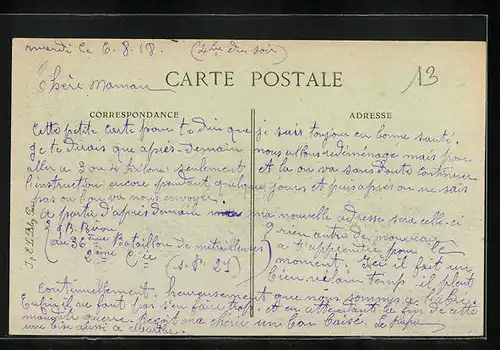 mardi le 6. 8. 18. (4h du soir)
13
Chère Maman
CARTE POSTALE
CORRESPONDANCE
ADRESSE
Cette petite carte pour te dire que
je suis toujour en bonne santé.
je te dirais que après-demain
nous allons redéménagé mais pour
aller a 3 ou 4 kilom. seulement
et la ou va sans doute continuer
l'instruction encore pendant quelque
jours et puis après on ne sais
pas ou bon va nous envoyer.
a partir d'après demain
ma nouvelle adresse sera celle-ci
au 36ème Bataillon de mitrailleuses
2ème Cie
(S. P. 21)
rien autre de nouveau
a t'apprendre pour le
moment. Ici il fait un
bien vilain temp. il pleut
Continuellement. heureusement
que nous sommes a l'abri.
Enfin il ne faut pas s'en faire trop
et en attendant la fin de cette
maudite guerre. Reçoit ma chérie
un bon baisé.
une bise aussi a